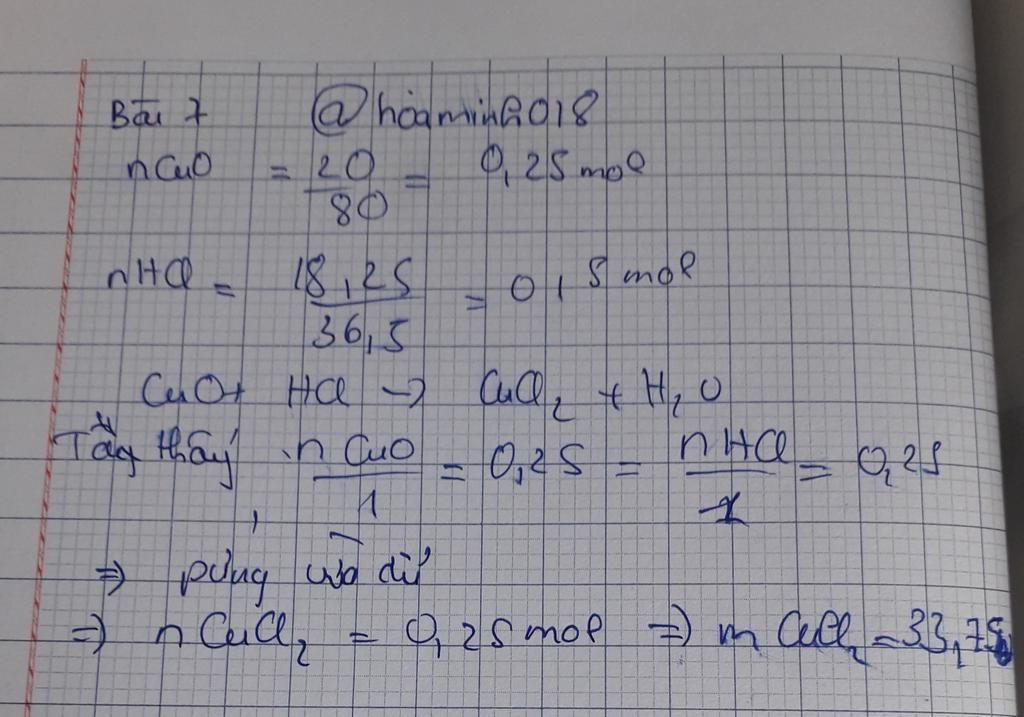 Bài 7 @hòaminh2018
nCuO = 20/80 = 0,25 mol
nHCl = 18,25/36,5 = 0,5 mol
CuO + HCl → CuCl₂ + H₂O
thấy nCuO/1 = 0,25 = nHCl/2 = 0,25
⇒ pứng vừa đủ
⇒ nCuCl₂ = 0,25 mol ⇒ mCuCl₂ = 33,75